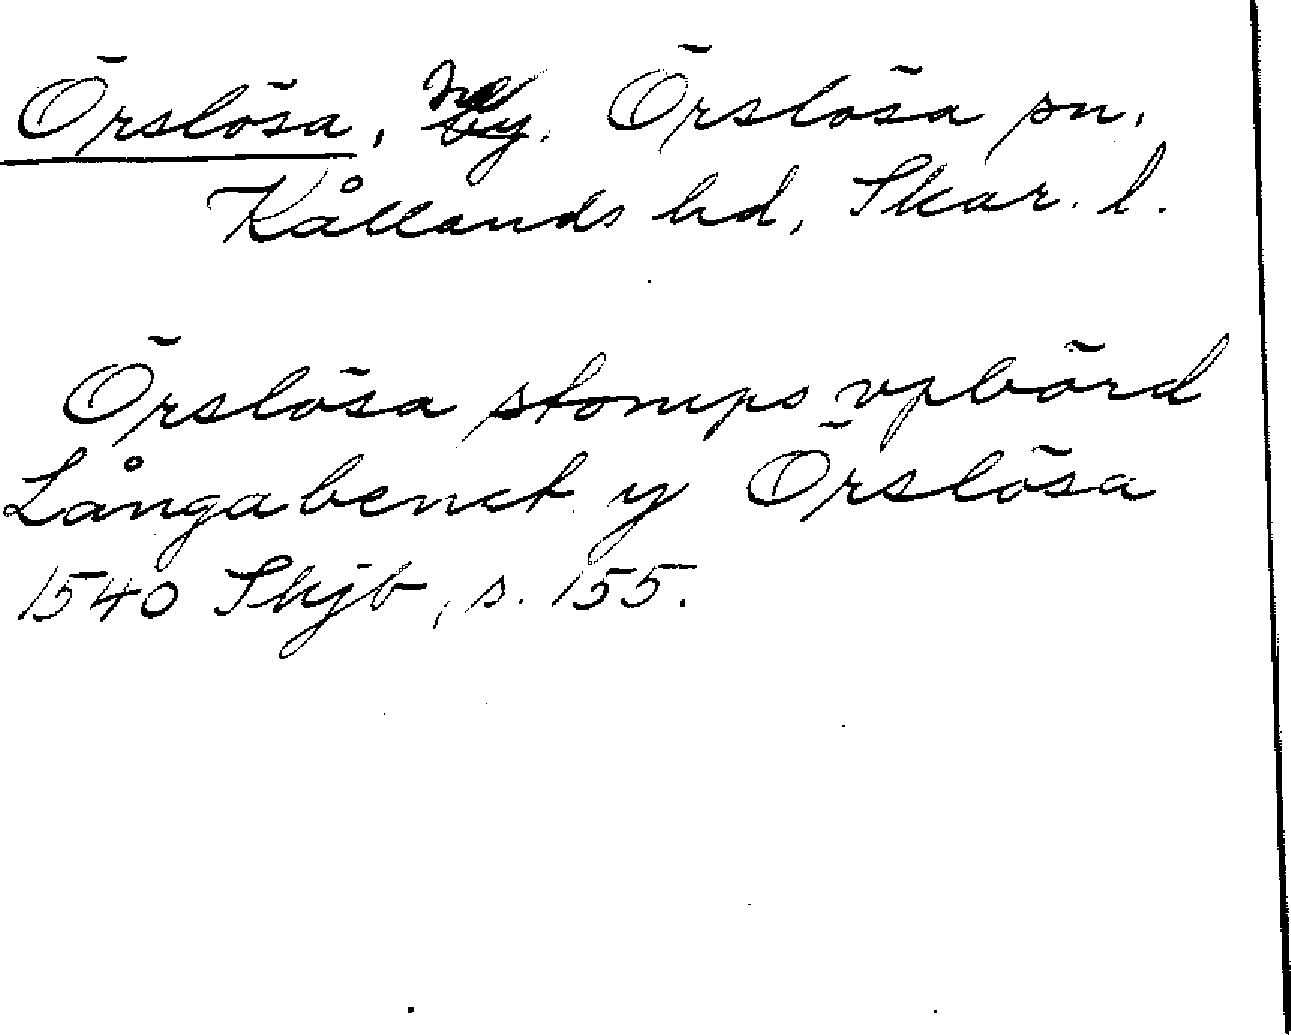 Örslösa, by. Örslösa sn.
Kållands hd, Skar. l.
Örslösa stomps vpbörd
Långabenct y Örslösa
1540 Skjb, s. 155.